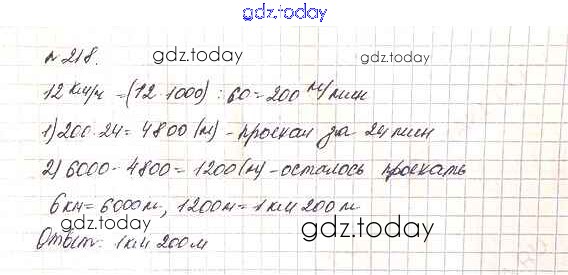 gdz.today
№ 218.
gdz.today
12 км/ч = (12·1000) : 60 = 200 м/мин
1) 200·24 = 4800 (м) - проехал за 24 мин
2) 6000 - 4800 = 1200 (м) - осталось проехать
6 км = 6000 м, 1200 м = 1 км 200 м
gdz.today
gdz.today
Ответ: 1 км 200 м